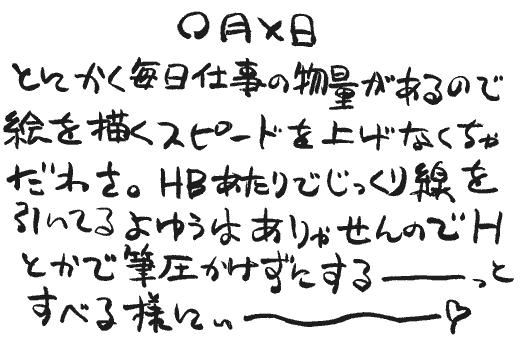 〇月×日
とにかく毎日仕事の物量があるので
絵を描くスピードを上げなくちゃ
だわさ。HBあたりでじっくり線を
引いてるよゆうはありゃせんのでH
とかで筆圧かけずにする――っと
すべる様にぃ〜〜〜♡